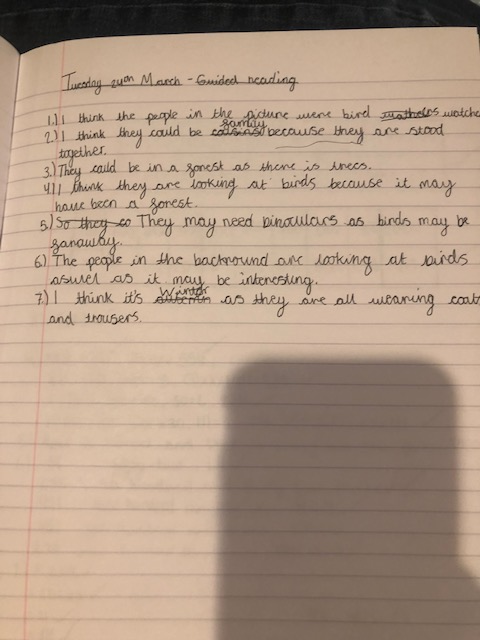 Tuesday 24th March - Guided reading
1.) I think the people in the picture were bird watche
family
2.) I think they could be cousins because they are stood
together.
3.) They could be in a forest as there is trees.
4.) I think they are looking at birds because it may
have been a forest.
5.) So they co They may need binoculars as birds may be
faraway.
6.) The people in the backround are looking at birds
aswel as it may be interesting.
Winter
7.) I think it's autemn as they are all wearing coat
and trousers.